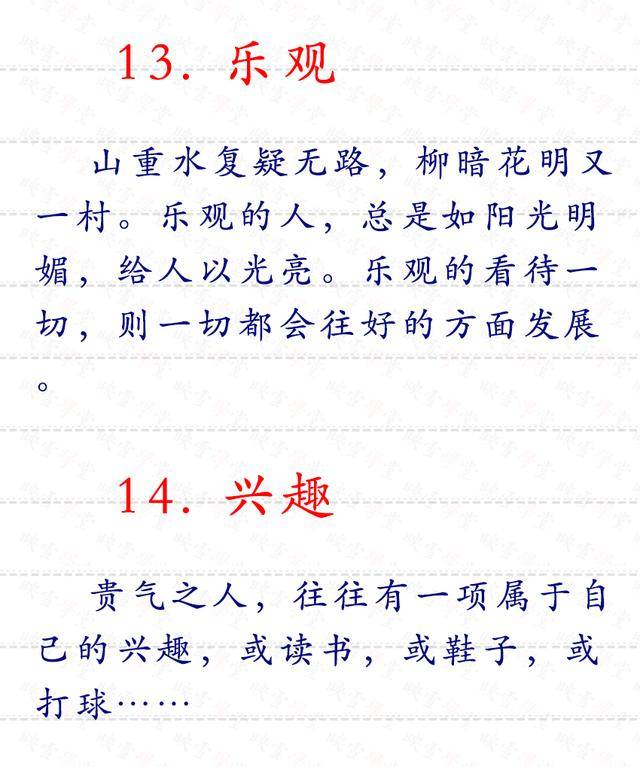 13. 乐观
山重水复疑无路，柳暗花明又
一村。乐观的人，总是如阳光明
媚，给人以光亮。乐观的看待一
切，则一切都会往好的方面发展
。
14. 兴趣
贵气之人，往往有一项属于自
己的兴趣，或读书，或鞋子，或
打球……